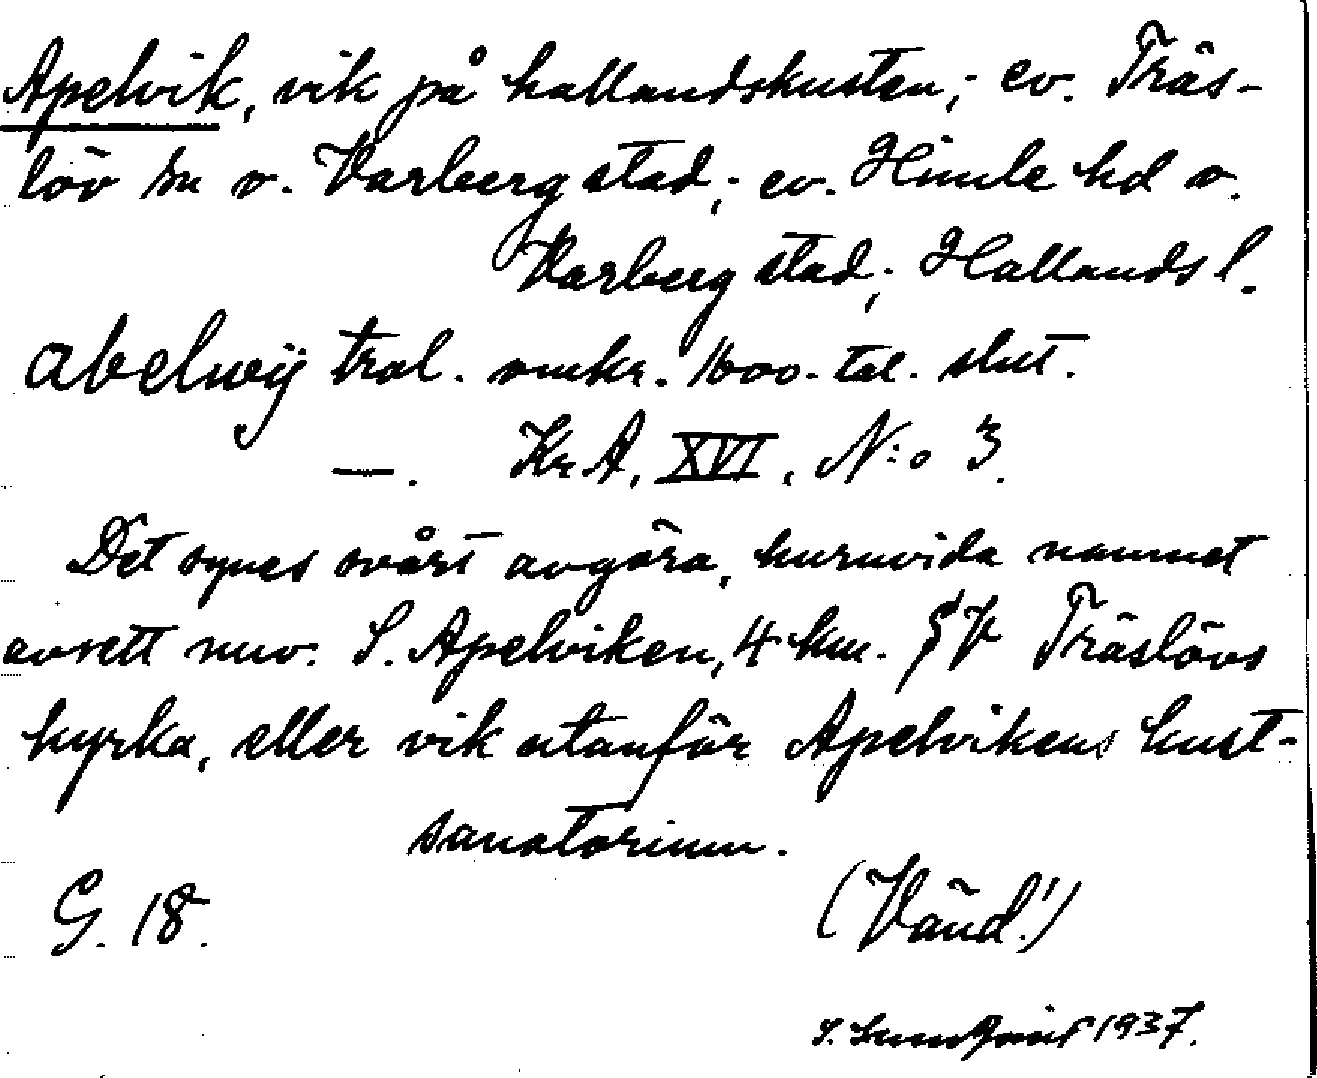 Apelvik, vik på hallandskusten; ev. Träs-
löv sn o. Varberg stad; ev. Himle hd o.
Varberg stad; Hallands l.
abelwij trol. omkr. 1600-tal. slut.
—. Kr. A, XVI, N:o 3.
Det synes svårt avgöra, huruvida namnet
avsett nuv. S. Apelviken, 4 km. SV Träslövs
kyrka, eller vik utanför Apelvikens kust-
sanatorium.
G. 18.
(Vänd!)
1937.